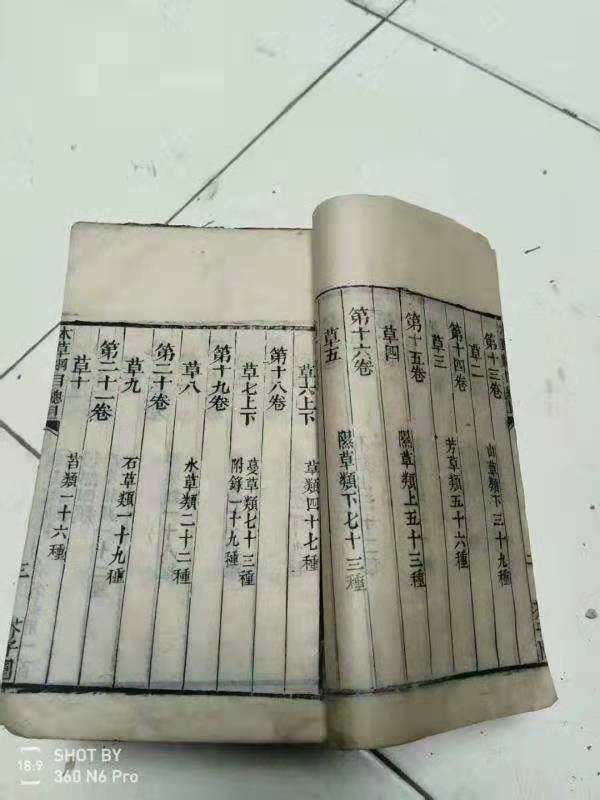 第十三卷
草二
山草類下三十九種
第十四卷
草三
芳草類五十六種
第十五卷
草四
隰草類上五十三種
第十六卷
草五
隰草類下七十三種
草六上下
草類四十七種
第十八卷
草七上下
蔓草類七十三種
附錄一十九種
第十九卷
草八
水草類二十二種
第二十卷
草九
石草類一十九種
第二十一卷
草十
苔類一十六種
本草綱目總目
二
芥子園
18:9
SHOT BY
360 N6 Pro